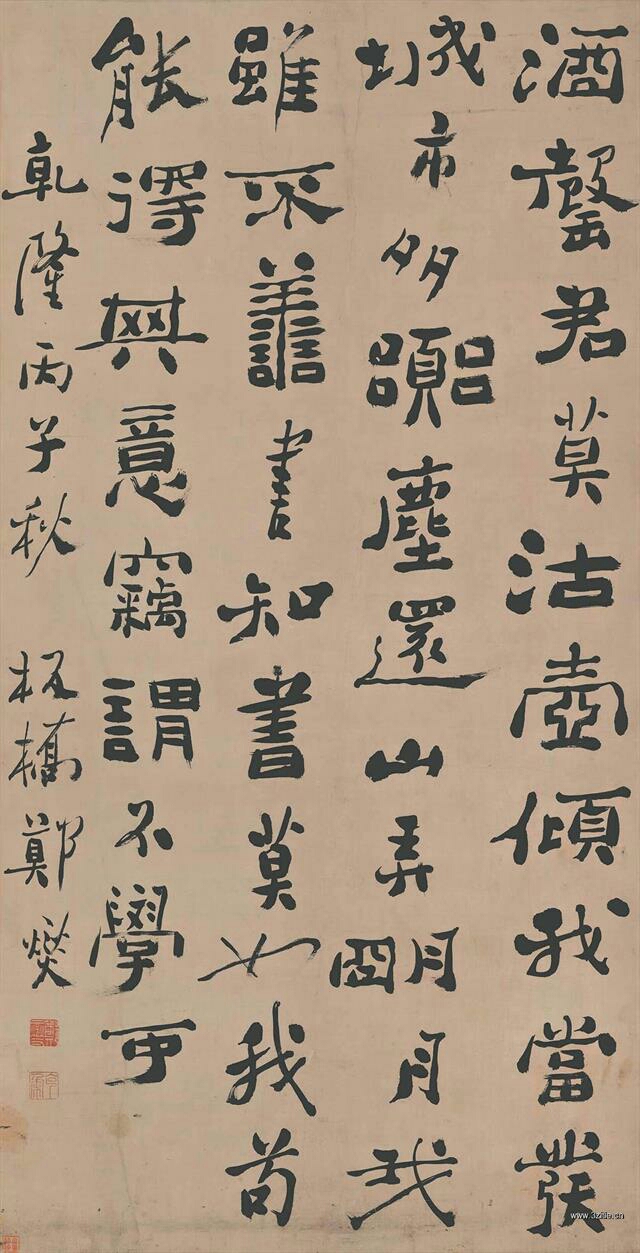 酒罄君莫沽壺傾我當發
城市多囂塵還山弄朙月我
雖不譱書知書莫如我苟
能得其意竊謂不學可
乾隆丙子秋 板橋鄭燮
www.3zitie.cn